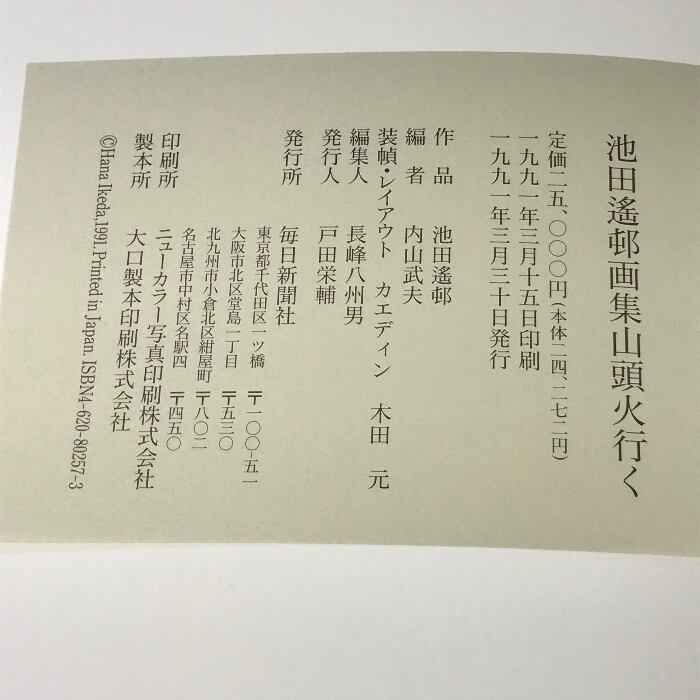 池田遙邨画集山頭火行く
定価二五、〇〇〇円(本体二四、二七二円)
一九九一年三月十五日印刷
一九九一年三月三十日発行
作品 池田遙邨
編者 内山武夫
装幀・レイアウト カエディン 木田 元
編集人 長峰八州男
発行人 戸田栄輔
発行所 毎日新聞社
東京都千代田区一ツ橋 〒一〇〇-五一
大阪市北区堂島一丁目 〒五三〇
北九州市小倉北区紺屋町 〒八〇二
名古屋市中村区名駅四 〒四五〇
印刷所 ニューカラー写真印刷株式会社
製本所 大口製本印刷株式会社
©Hana Ikeda,1991. Printed in Japan. ISBN4-620-80257-3